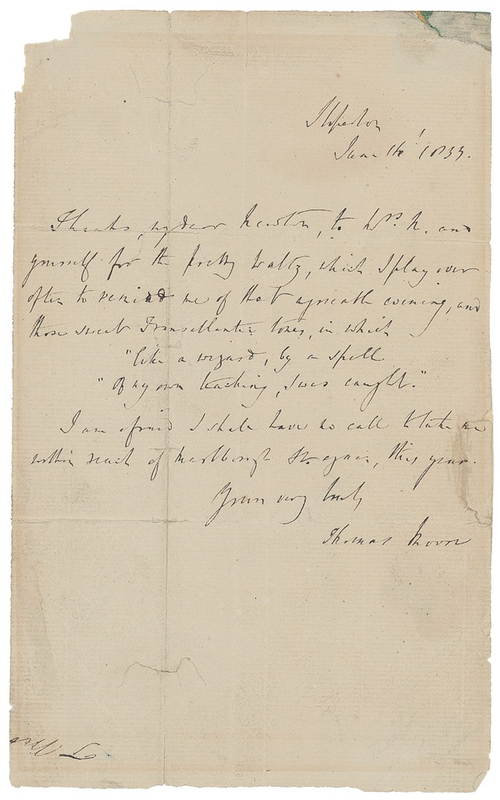 Sloperton
June 14' 1839.
Thanks, my dear Newton, to Mrs. N. and
yourself for the pretty waltz, which I play over
often to remind me of that agreeable evening, and
those sweet Transatlantic tones, in which
"like a wizard, by a spell
"Of my own teaching, I was caught."
I am afraid I shall have no call to take me
within reach of Marlborough St. again, this year.
Yours very truly
Thomas Moore